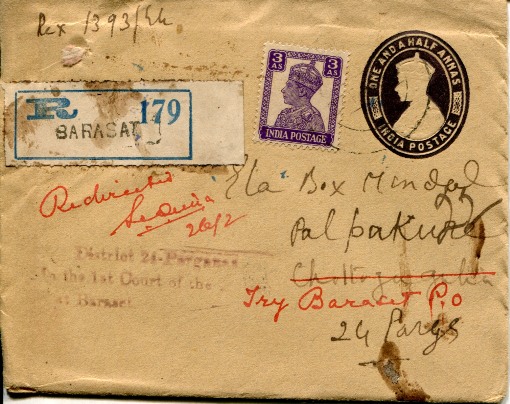 Rex 1393/Ek
3 AS
3 AS
INDIA POSTAGE
ONE AND A HALF ANNAS
INDIA POSTAGE
R 179
BARASAT
Redirected
26/2
Ela Box Mondal
Palpakuria
Try Barasat P.O
24 Pargs
District 24-Parganas
In the 1st Court of the
at Barasat